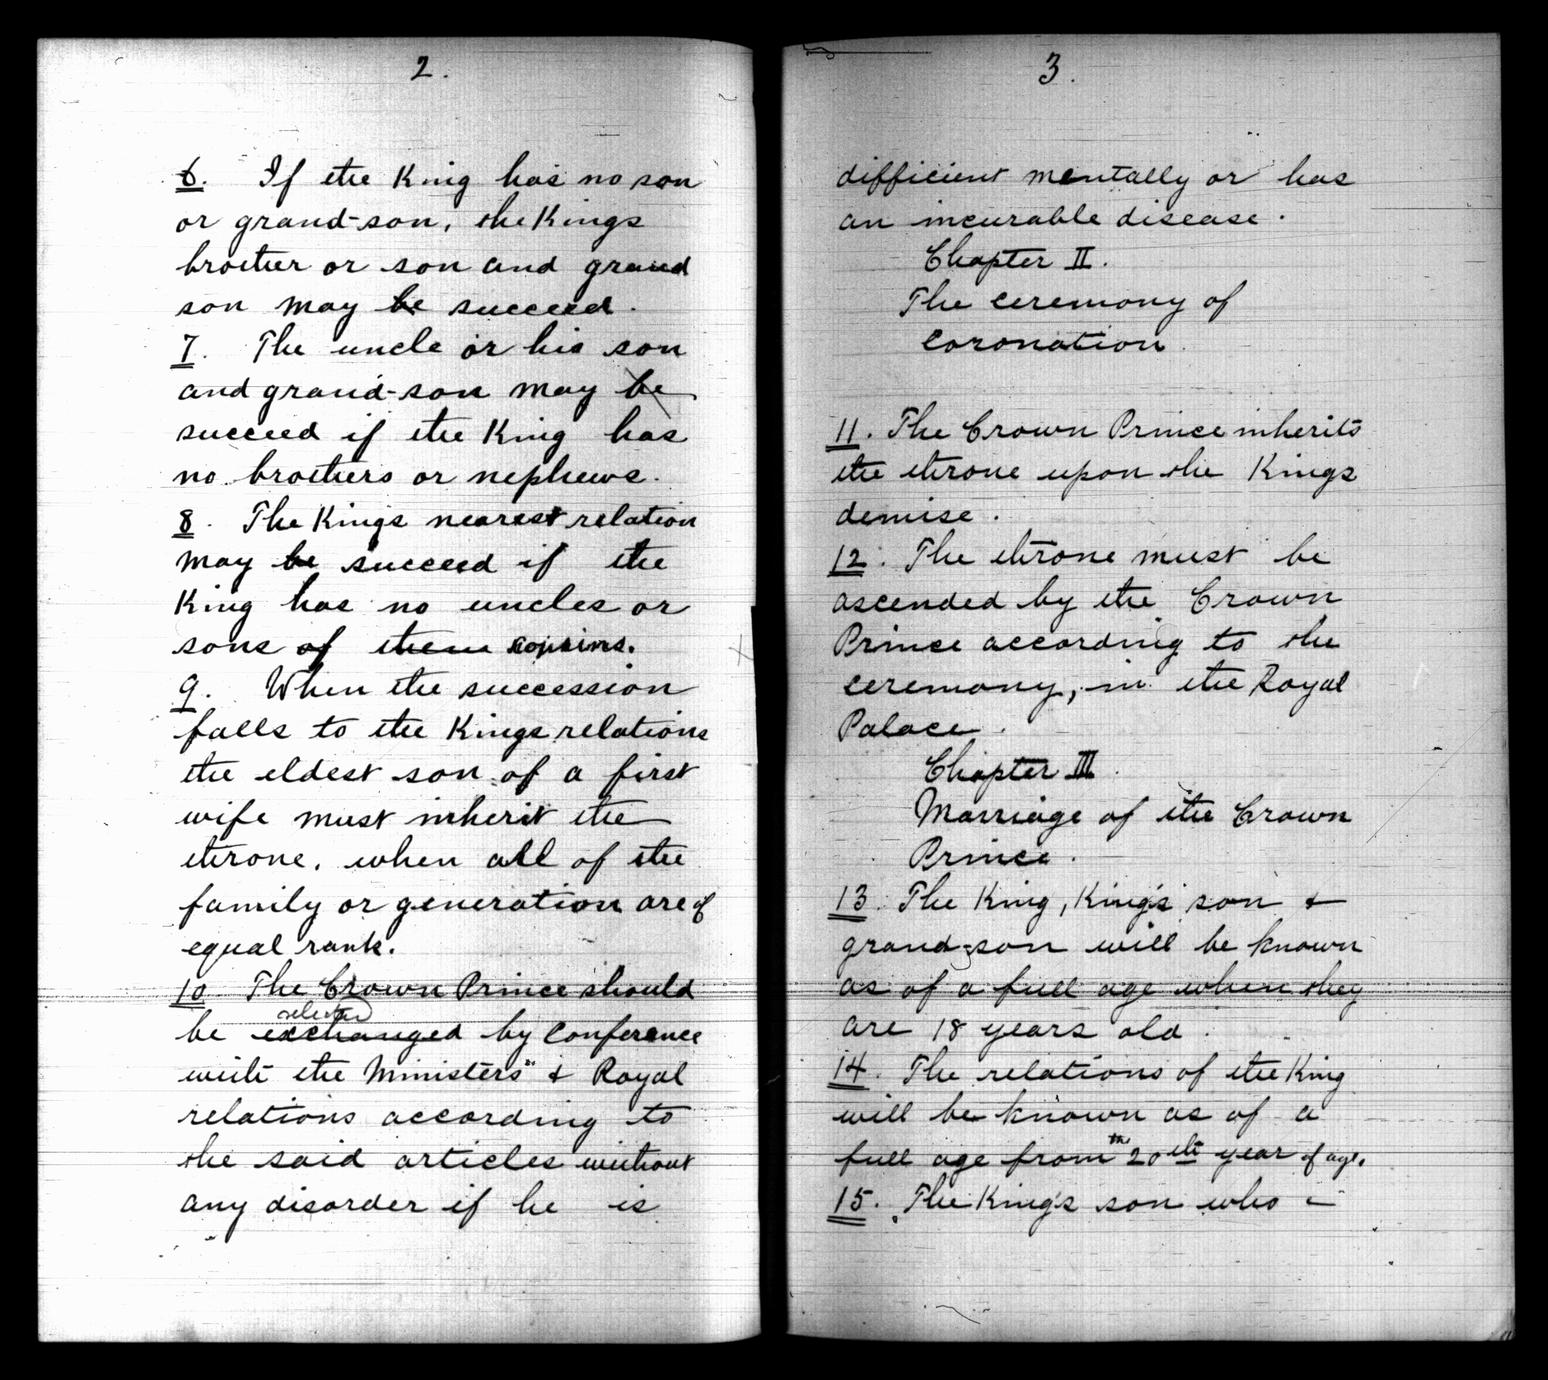 2.
6. If the King has no son
or grand-son, the Kings
brother or son and grand
son may be succeed.
7. The uncle or his son
and grand-son may be
succeed if the King has
no brothers or nephews.
8. The Kings nearest relation
may be succeed if the
King has no uncles or
sons of them cousins.
9. When the succession
falls to the Kings relations
the eldest son of a first
wife must inherit the
throne, when all of the
family or generation are of
equal rank.
10. The Crown Prince should
selected
be exchanged by Conference
with the Ministers & Royal
relations according to
the said articles without
any disorder if he is
3.
difficient mentally or has
an incurable disease.
Chapter II.
The ceremony of
coronation.
11. The Crown Prince inherits
the throne upon the Kings
demise.
12. The throne must be
ascended by the Crown
Prince according to the
ceremony, in the Royal
Palace.
Chapter III.
Marriage of the Crown
Prince.
13. The King, King's son &
grand-son will be known
as of a full age when they
are 18 years old.
14. The relations of the King
will be known as of a
full age from the 20th year of age.
15. The King's son who